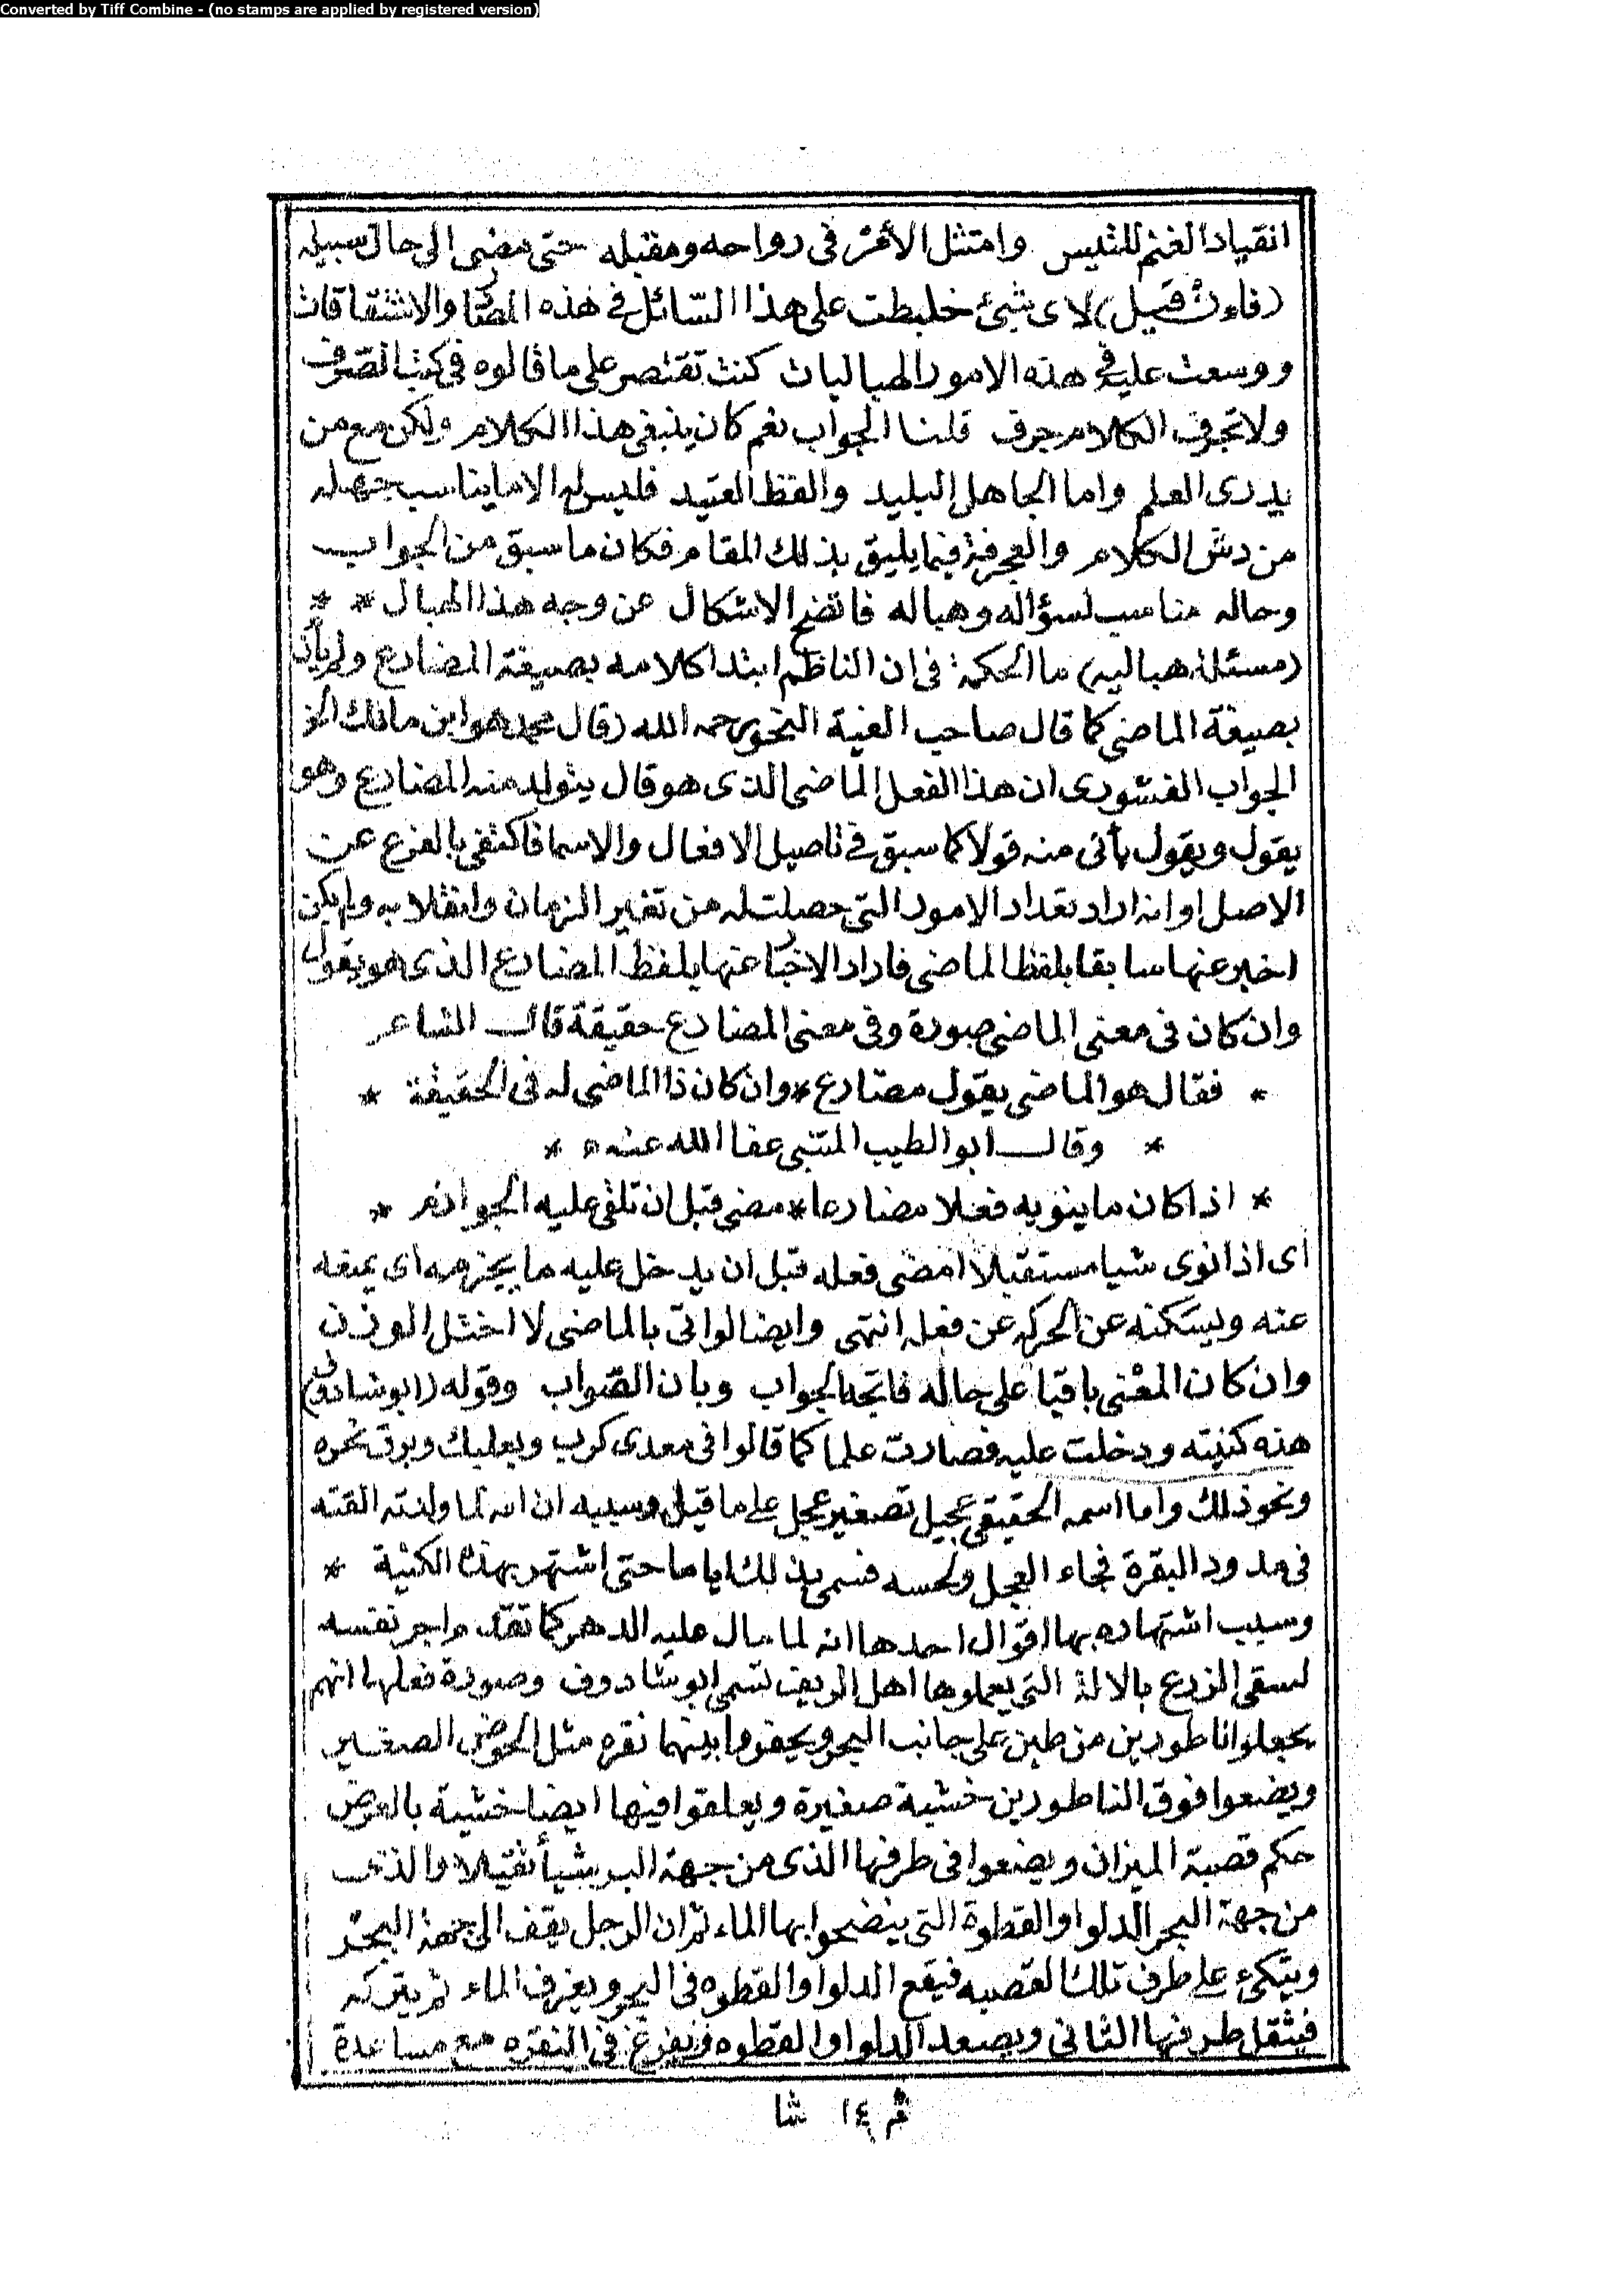 Converted by Tiff Combine - (no stamps are applied by registered version)
انقياد الغنم للتيس وامتثل الأمر فى رواحه ومقبله حتى مضى الى حال سبيله
(فإن قيل) لاى شيئ خلبطت على هذا السّائل فى هذه المصا والاشتقاقات
ووسعت عليه فى هذه الامور الهباليات كنت تقتصر على ما قالوه فى كتب الصّرف
ولا تجرف الكلام جرف قلنا الجواب نعم كان ينبغى هذا الكلام ولكن مع من
يدرى العلم واما الجاهل البليد والفظ العتيد فليس له الا ما يناسب جهله
من دش الكلام والعجرفة فيما يليق بذلك المقام فكان ما سبق من الجواب
وحاله مناسب لسؤاله وهباله فاتضح الاشكال عن وجه هذا الهبال * *
(مسئلة هباليه) ما الحكمة فى ان الناظم ابتدا كلامه بصيغة المضارع ولم يأت
بصيغة الماضى كما قال صاحب الفية النحو رحمه الله (قال محمد هو ابن مالك الخ
الجواب الفشورى ان هذا الفعل الماضى الذى هو قال يتولد منه المضارع وهو
يقول ويقول يأتى منه قولا كما سبق فى تاصيل الافعال والاسما فاكتفى بالفرع عن
الاصل او انه اراد تعداد الامور التى حصلت له من تغير الزمان وانقلابه ولم يكن
اخبر عنها سابقا بلفظ الماضى فاراد الاخبا عنها بلفظ المضارع الذى هو يقول
وان كان فى معنى الماضى صورة وفى معنى المضارع حقيقة قال الشاعر
* فقال هو الماضى يقول مضارع * وان كان ذا الماضى له فى الحقيقة *
* وقال ابو الطيب المتنبى عفا الله عنه * *
* اذا كان ما ينويه فعلا مضارعا * مضى قبل ان تلقى عليه الجوازم *
اى اذا نوى شيا مستقبلا امضى فعله قبل ان يدخل عليه ما يجزمه اى يمنعه
عنه ويسكنه عن الحركه عن فعله انتهى وايضا لو اتى بالماضى لا اختل الوزن
وان كان المعنى باقيا على حاله فاتجه الجواب وبان الصّواب وقوله (ابو شادوف)
هذه كنيته ودخلت عليه فصارت علما كما قالوا فى معدى كرب وبعلبك وبرق نحره
ونحو ذلك واما اسمه الحقيقى عجيل تصغير عجل على ما قيل وسببه ان امه لما ولدته القته
فى مدود البقرة فجاء العجل ولحسه فسمى بذلك اياما حتى اشتهر بهذه الكنية *
وسبب اشتهاره بها اقوال احدها انه لما مال عليه الدهر كما تقدم اجر نفسه
لسقى الزرع بالالة التى يعملوها اهل الريف تسمى ابو شادوف وصورة فعلها انهم
يجعلوا ناطورين من طين على جانب البحر ويحفروا بينهما نقره مثل الحوض الصغير
ويضعوا فوق الناطورين خشبة صغيرة ويعلقوا فيها ايضا خشبة بالعرض
حكم قصبة الميزان ويضعوا فى طرفها الذى من جهة البر شيأ ثقيلا والذى
من جهة البحر الدلو او القطوة التى ينضحوا بها الماء ثم ان الرجل يقف الى جهة البحر
ويتكئ على طرف تلك القصبه فيقع الدلو او القطوه فى البحر ويغرف الماء ثم يتركه
فيثقل طرفها الثانى ويصعد الدلو او القطوه ويفرغ فى النقره مع مساعدة
١٤ شا